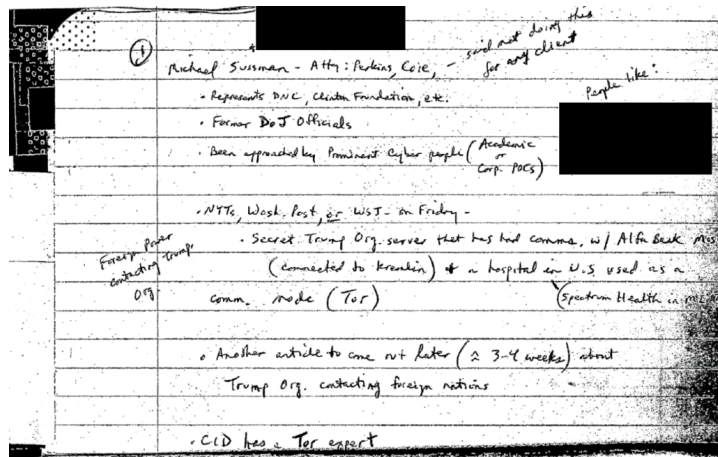 ①
Michael Sussman - Atty: Perkins, Coie, - said not doing this for any client
• Represents DNC, Clinton Foundation, etc.
• Former DoJ Officials
• Been approached by Prominent Cyber people (Academic or Corp. POCs)
People like:
• NYTs, Wash. Post, or WSJ - on Friday -
• Secret Trump Org. server that has had comms. w/ Alfa Bank
Foreign Power contacting Trump Org.
(connected to Kremlin) + a hospital in U.S. used as a
comm. node (Tor) (Spectrum Health in
• Another article to come out later (≈ 3-4 weeks) about
Trump Org. contacting foreign nations
• CID has a Tor expert